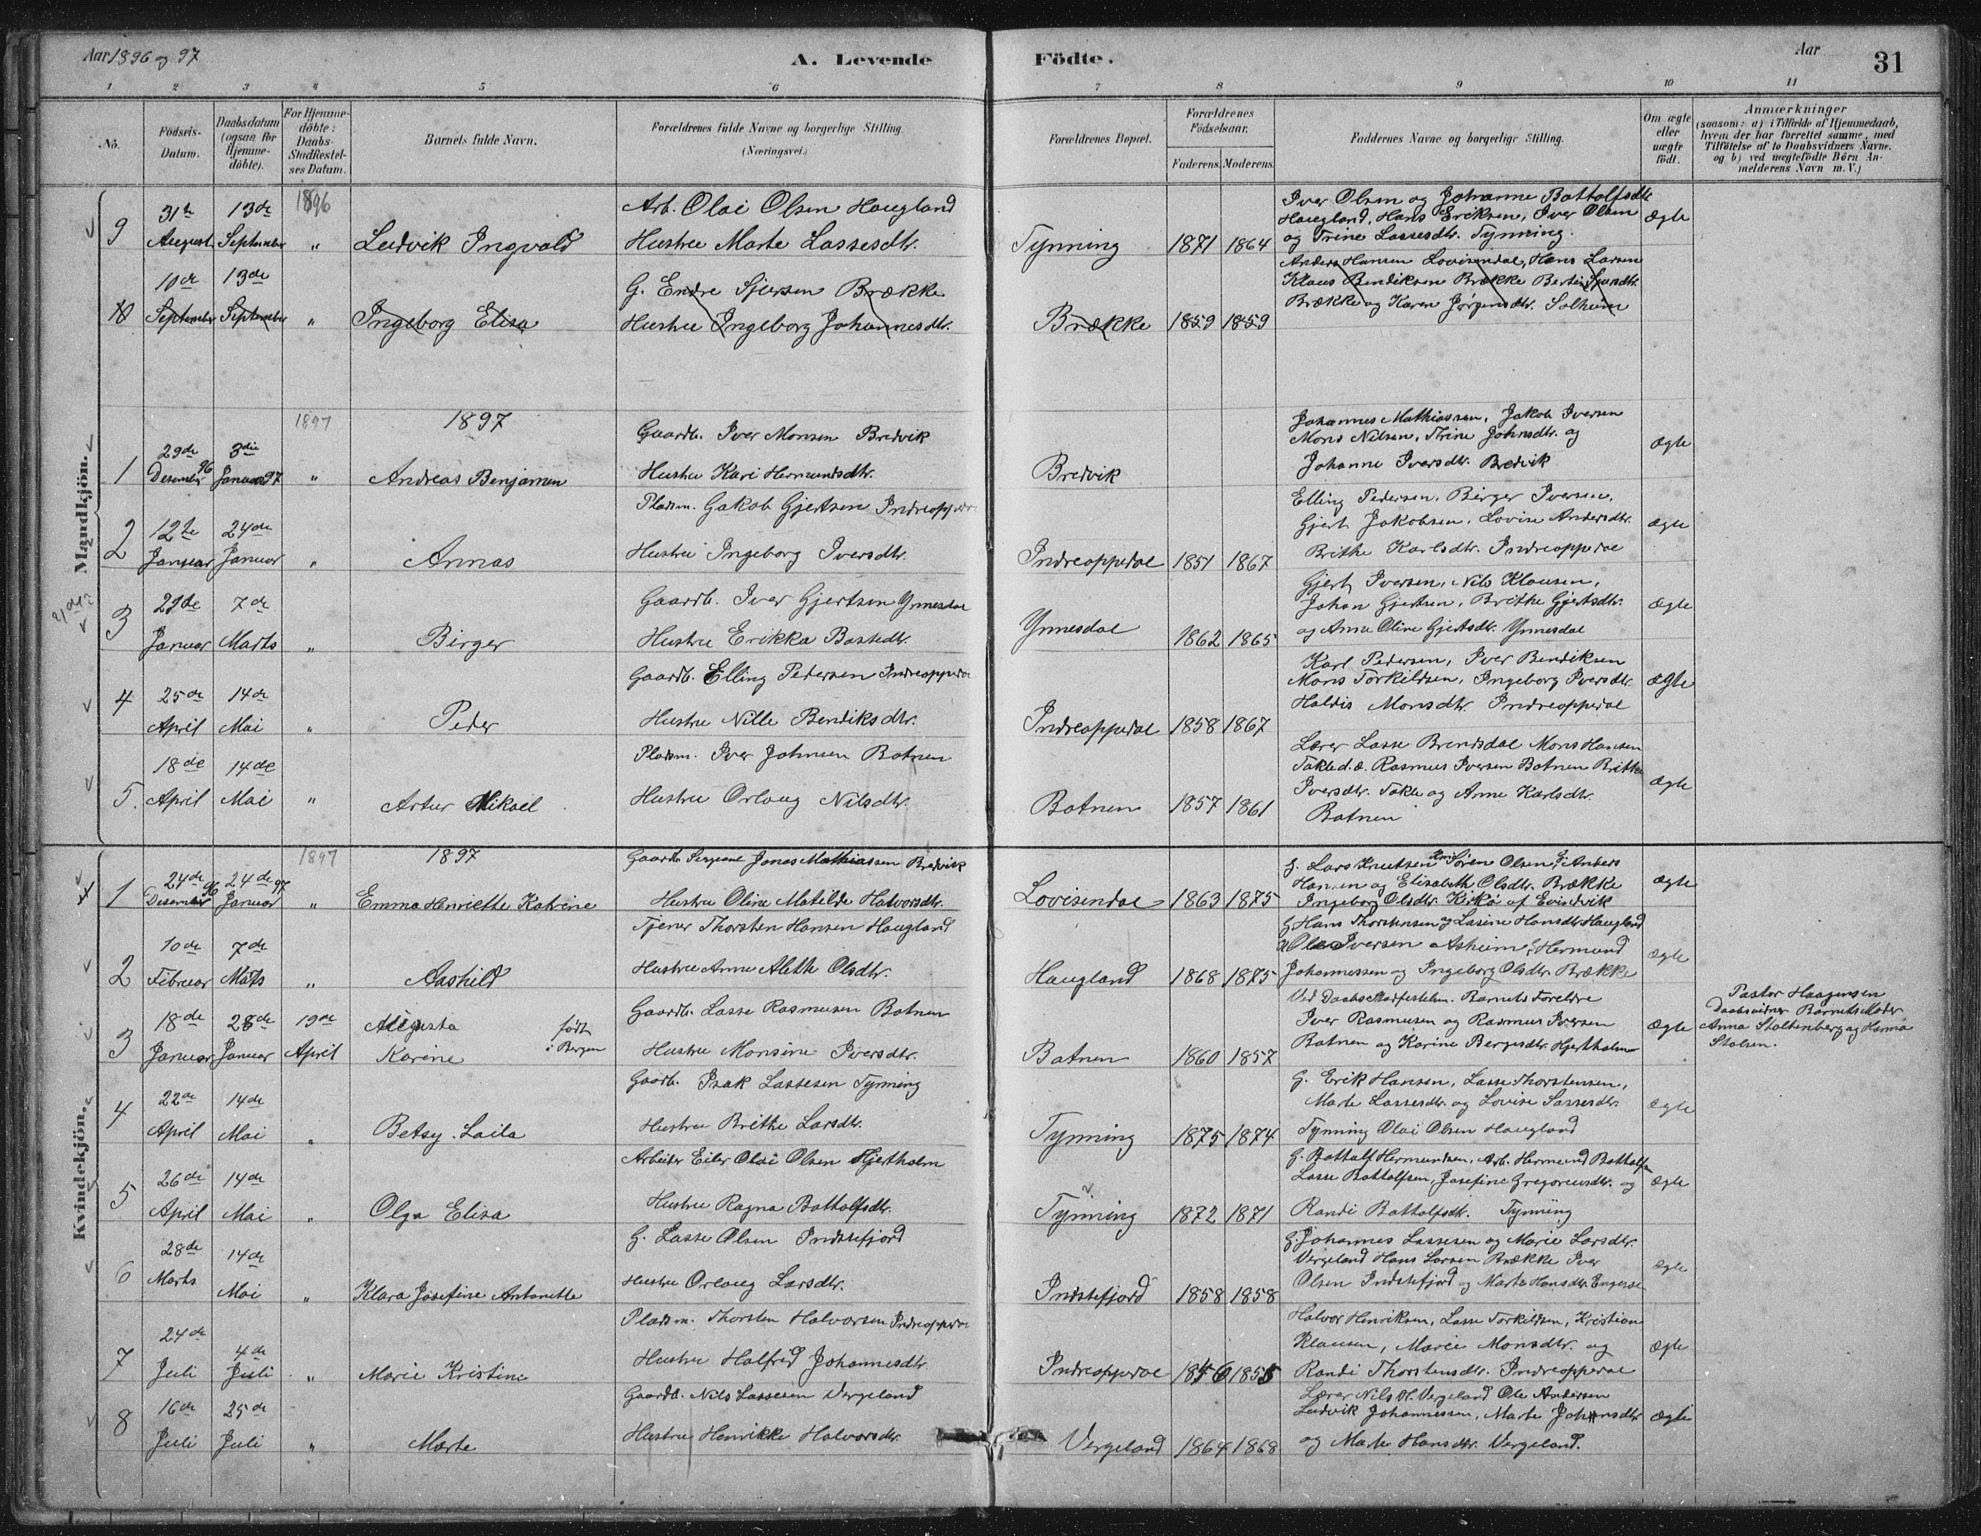 Aar 1896 og 97
A. Levende
Födte.
Aar
31
1 2 3 4 5 6 7 8 9 10 11
No.
Födsels-
Datum.
Daabsdatum
(ogsaa for
Hjemme-
döbte).
For Hjemme-
döbte:
Daabs-
Stadfestel-
ses Datum.
Barnets fulde Navn.
Forældrenes fulde Navne og borgerlige Stilling
(Næringsvei.)
Forældrenes Bopæl.
Forældrenes
Födselsaar.
Faderens. Moderens.
Faddernes Navne og borgerlige Stilling.
Om ægte
eller
uægte
födt.
Anmærkninger
(saasom: a) i Tilfælde af Hjemmedaab,
hvem der har forrettet samme, med
Tilföielse af to Daabsvidners Navne.
og b) ved uægtefödte Börn An-
melderens Navn m. V.)
1896
9
31te
August
13de
September
"
Ludvik Ingvald
Arb. Olai Olsen Haugland
Hustru Marte Lassesdtr.
Tynning
1871 1864
Iver Olsen og Johanne Battolfsdtr
Haugland, Hans Eriksen, Iver Olsen
og Trine Lassesdtr. Tynning.
Ægte
10
10de
September
13de
September
"
Ingeborg Elisa
G. Endre Sjursen Brække
Hustru Ingeborg Johannesdtr.
Brække
1859 1859
Anders Hansen Lovisendal, Hans Larsen
Klaus Bendiksen Brække
Brække og Karen Jørgensdtr. Solheim
Mandkjön.
1897
1897
1
29de
Desember 96
3die
Januar 97
"
Andreas Benjamin
Gaardb. Iver Monsen Bredvik
Hustru Kari Hermundsdtr.
Bredvik
Johannes Mathiassen, Jakob Iversen
Mons Nilsen, Trine Johnsdtr. og
Johanne Iversdtr. Bredvik
Ægte
2
12te
Januar
24de
Januar
"
Annas
Pladsm. Jakob Gjertsen Indreoppedal
Hustru Ingeborg Iversdtr.
Indreoppedal
1851 1867
Elling Pedersen, Birger Iversen,
Gjert Jakobsen, Lovise Andersdtr.
Brithe Karlsdtr. Indreoppedal
Ægte
3
29de
Januar
7de
Marts
"
Birger
Gaardb. Iver Gjertsen Ynnesdal
Hustru Erikka
Ynnesdal
1862 1865
Gjert Iversen, Nils Klausen,
Johan Gjertsen, Brithe Gjertsdtr.
og Anne Oline Gjertsdtr. Ynnesdal
Ægte
4
25de
April
14de
Mai
"
Peder
Gaardb. Elling Pedersen Indreoppedal
Hustru Nille Bendiksdtr.
Indreoppedal
1858 1867
Karl Pedersen, Iver Bendiksen
Mons Torkildsen, Ingeborg Iversdtr.
Haldis Monsdtr. Indreoppedal
Ægte
5.
18de
April
14de
Mai
"
Artur Mikael
Pladsm. Iver Johnsen Botnen
Hustru Orloug Nilsdtr.
Botnen
1857 1861
Lærer Lasse Brendsdal Mons Hansen
Takle d.æ. Rasmus Iversen Botnen Brithe
Iversdtr. Takle og Anne Karlsdtr.
Botnen
Ægte
Kvindekjön.
1897
1897
1
24de
Desember 96
24de
Januar 97
"
Emma Henriette Katrine
Gaardb. Sergeant Jonas Mathiassen Bredvik
Hustru Oline Matilde Halvorsdtr.
Lovisendal
1863 1875
G. Lars Knutsen Søren Olsen, Anders
Hansen og Elisabeth Olsdtr. Brække
Ingeborg Olsdtr. af Evindvik
Ægte
2
10de
Februar
7de
Marts
"
Aashild
Tjener Thorsten Hansen Haugland
Hustru Anne Alethe Olsdtr.
Haugland
1868 1875
G Hans Thorstensen og Lasine Hansdtr Haugland
Ole Iversen Asheim, Hermund
Johannessen og Ingeborg Olsdtr. Brække
Ægte
3
18de
Januar
28de
Januar
19de
April
Augusta
Karine
født
i Bergen
Gaardb. Lasse Rasmusen Botnen
Hustru Monsine Iversdtr.
Botnen
1860 1857
Ved Daabs Stadfestelsen. Barnets Foreldre
Iver Rasmusen og Rasmus Iversen
Botnen og Karine Bergesdtr. Hjertholm
Ægte
Pastor Haagensen
Daabsvidner Barnets Moder
Anna Stoltenberg og Hanna
Stolsen.
4
22de
April
14de
Mai
"
Betsy Laila
Gaardb. Isak Lassesen Tynning
Hustru Brithe Larsdtr.
Tynning
1875 1874
G. Erik Hansen, Lasse Thorstensen,
Marte Lassesdtr. og Lovise Lassesdtr.
Tynning Olai Olsen Haugland
Ægte
5
26de
April
14de
Mai
"
Olga Elisa
Arbeider Eiler Olai Olsen Hjertholm
Hustru Ragna Battolfsdtr.
Tynning
1872 1871
G. Battolf Hermundsen, Arb. Hermund Battolfsen
Lasse Battolfsen, Josefine Gregoriusdtr. og
Randi Battolfsdtr. Tynning
Ægte
6
28de
Marts
14de
Mai
"
Klara Josefine Antonette
G. Lasse Olsen Indstefjord
Hustru Orloug Larsdtr.
Indstefjord
1858 1858
G. Johannes Lassesen og Marie Larsdtr.
Vergeland Hans Larsen Brække Iver
Olsen Indstefjord og Marta Hansdtr. Engesæ
Ægte
7
24de
Juli
4de
Juli
"
Marie Kristine
Pladsm. Thorsten Halvorsen Indreoppedal
Hustru Halfrid Johannesdtr.
Indreoppedal
1856 1855
Halvor Henriksen, Lasse Torkildsen, Kristian
Klausen, Marie Monsdtr. og
Randi Thorstensdtr. Indreoppedal
Ægte
8
16de
Juli
25de
Juli
"
Marte
Gaardb. Nils Lassesen Vergeland
Hustru Henrikke Halvorsdtr.
Vergeland
1864 1868
Lærer Nils Vergeland Ole Andersen
Ludvik Johannessen, Marte Johansdtr
og Marte Hansdtr. Vergeland.
Ægte